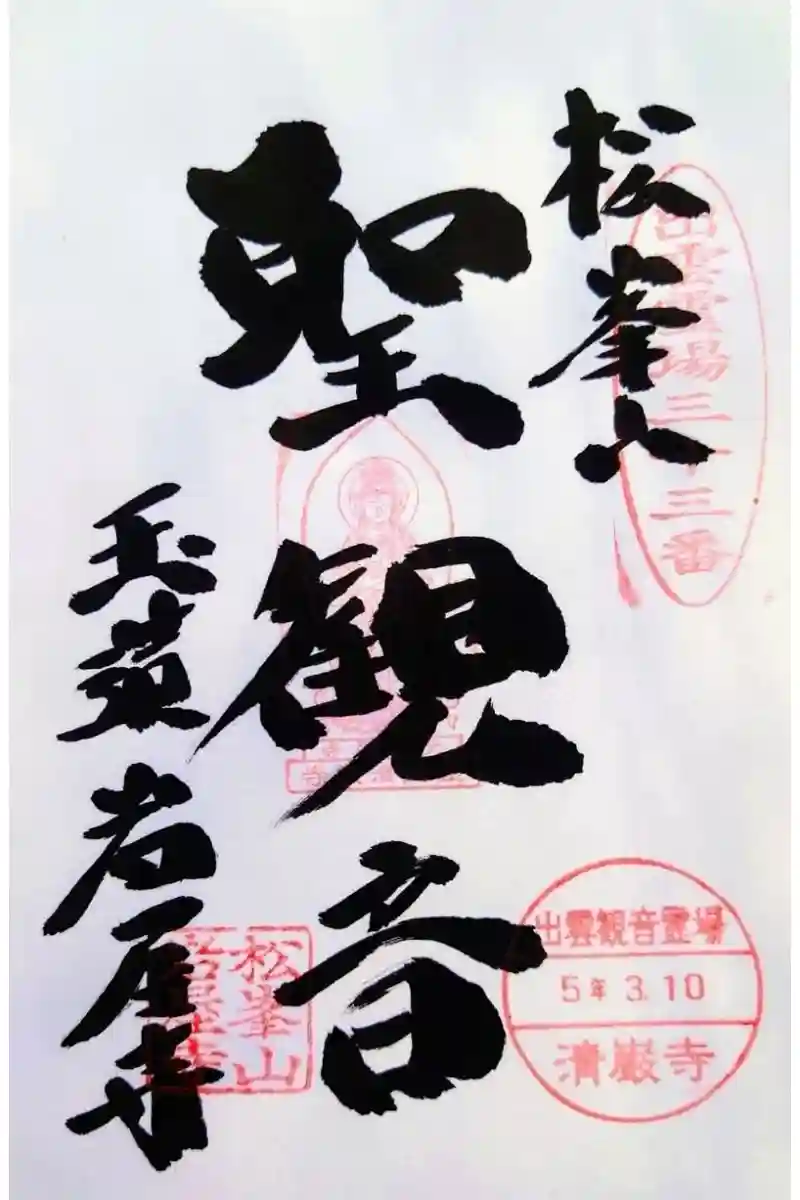 松峯山
出雲霊場三十三番
聖観音
玉蘂岩屋寺
松峯山
岩屋寺
出雲観音霊場
5年 3.10
清巌寺